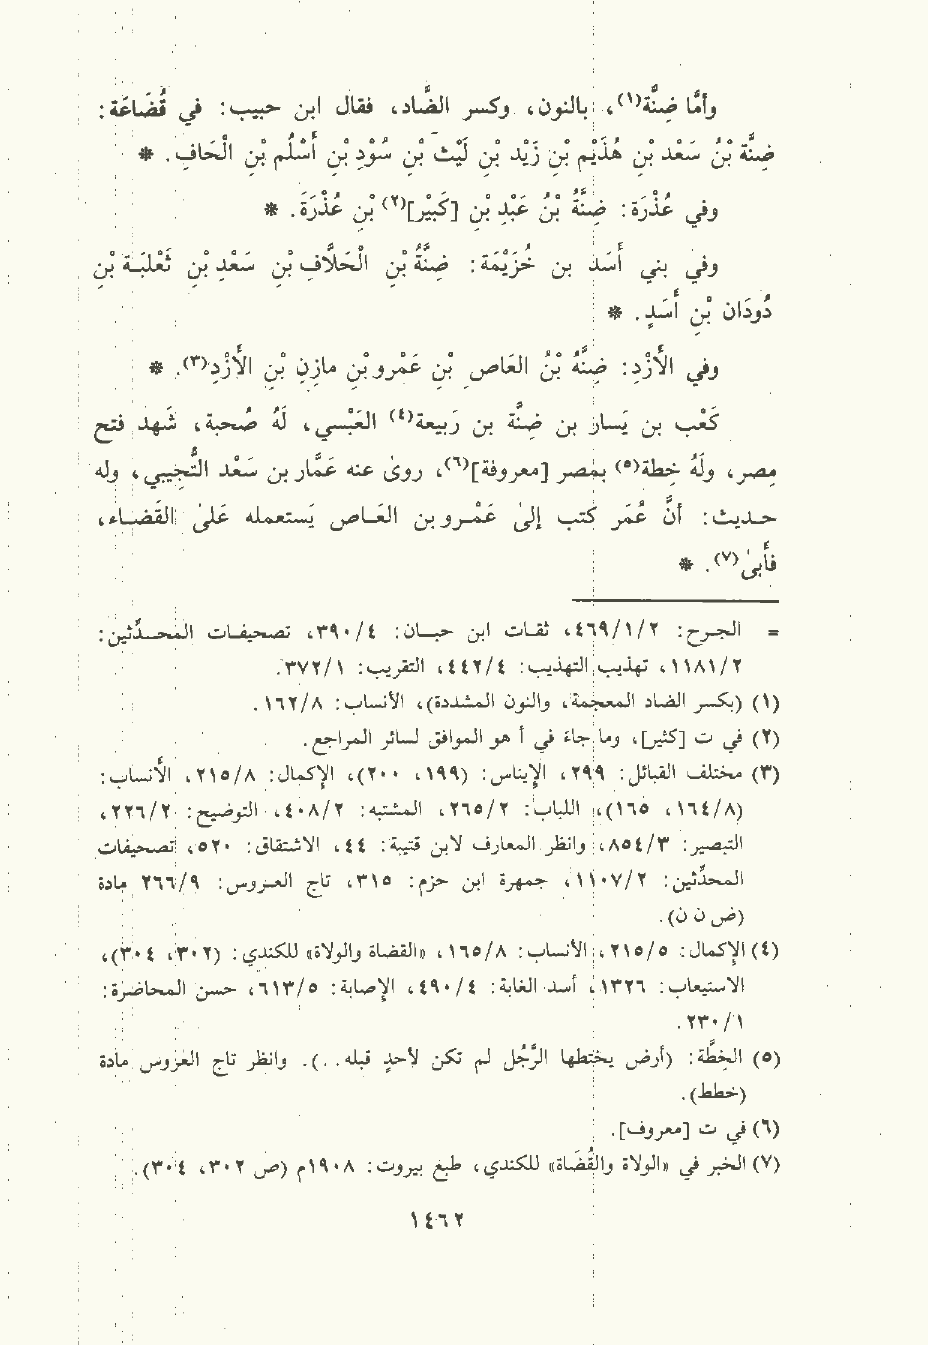 وأمَّا ضِنَّة(١)، بالنون، وكسر الضَّاد، فقال ابن حبيب: في قُضَاعَة:
ضِنَّة بْنُ سَعْد بْنِ هُذَيْم بْنِ زَيْد بْنِ لَيْث بْنِ سُوْدِ بْنِ أَسْلُم بْنِ الْحَافِ. *
وفي عُذْرَة: ضِنَّةُ بْنُ عَبْدِ بْنِ [كَبِيْر](٢) بْنِ عُذْرَةَ. *
وفي بني أَسَد بن خُزَيْمَة: ضِنَّةُ بْنُ الْحَلَّافِ بْنِ سَعْدِ بْنِ ثَعْلَبَـة بْنِ
دُودَان بْنِ أَسَدٍ. *
وفي الأَزْدِ: ضِنَّةُ بْنُ العَاصِ بْنِ عَمْرو بْنِ مازِنِ بْنِ الأَزْدِ(٣). *
كَعْب بن يَسار بن ضِنَّة بن رَبيعة(٤) العَبْسي، لَهُ صُحبة، شَهد فتح
مِصر، ولَهُ خِطة(٥) بمصر [معروفة](٦)، روىٰ عنه عَمَّار بن سَعْد التُّجِيبي، وله
حـديث: أنَّ عُمَر كتب إلىٰ عَمْـرو بن العَـاص يَستعمله عَلىٰ القَضَـاء،
فأَبىٰ(٧). *
= الجـرح: ٤٦٩/١/٢، ثقـات ابن حبــان: ٣٩٠/٤، تصحيفـات المحــدِّثين:
١١٨١/٢، تهذيب التهذيب: ٤٤٢/٤، التقريب: ٣٧٢/١.
(١) (بكسر الضاد المعجمة، والنون المشددة)، الأنساب: ١٦٢/٨.
(٢) في ت [كثير]، وما جاءَ في أ هو الموافق لسائر المراجع.
(٣) مختلف القبائل: ٢٩٩، الإيناس: (١٩٩، ٢٠٠)، الإكمال: ٢١٥/٨، الأَنساب:
(١٦٤/٨، ١٦٥)، اللباب: ٢٦٥/٢، المشتبه: ٤٠٨/٢، التوضيح: ٢٢٦/٢،
التبصير: ٨٥٤/٣، وانظر المعارف لابن قتيبة: ٤٤، الاشتقاق: ٥٢٠، تصحيفات
المحدِّثين: ١١٠٧/٢، جمهرة ابن حزم: ٣١٥، تاج العـروس: ٢٦٦/٩ مادة
(ض ن ن).
(٤) الإكمال: ٢١٥/٥، الأنساب: ١٦٥/٨، «القضاة والولاة» للكندي: (٣٠٢، ٣٠٤)،
الاستيعاب: ١٣٢٦، أسد الغابة: ٤٩٠/٤، الإصابة: ٦١٣/٥، حسن المحاضرة:
٢٣٠/١.
(٥) الخِطَّة: (أرض يختطها الرَّجُل لم تكن لأحدٍ قبله...). وانظر تاج العروس مادة
(خطط).
(٦) في ت [معروف].
(٧) الخبر في «الولاة والقُضَاة» للكندي، طبع بيروت: ١٩٠٨م (ص ٣٠٢، ٣٠٤).
١٤٦٢